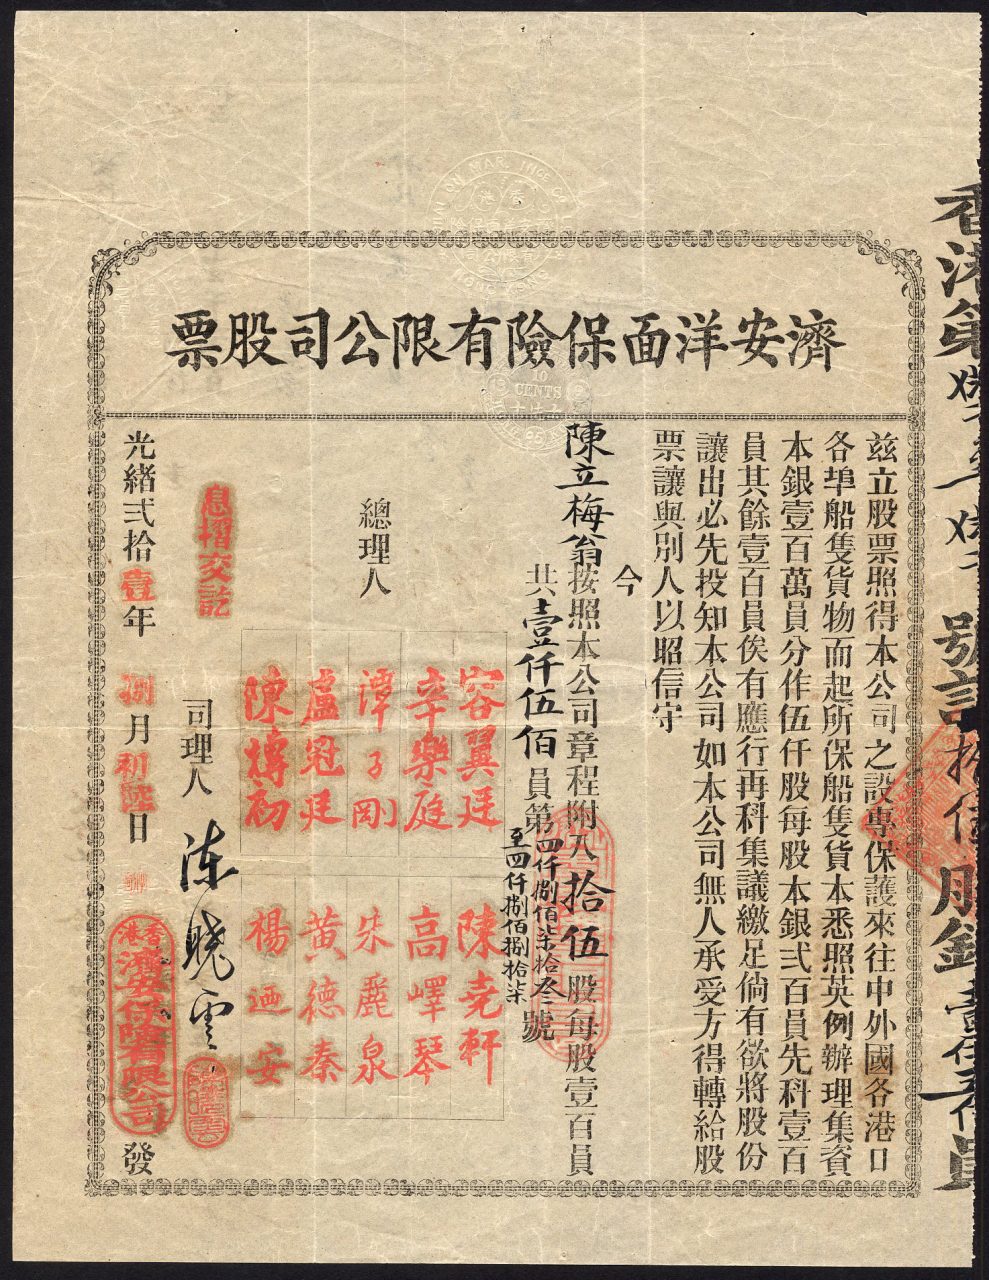 濟安洋面保險有限公司股票
茲立股票照得本公司之設專保護來往中外國各港口
各埠船隻貨物而起所保船隻貨本悉照英例辦理集資
本銀壹百萬員分作伍仟股每股本銀弍百員先科壹百
員其餘壹百員俟有應行再科集議繳足倘有欲將股份
讓出必先投知本公司如本公司無人承受方得轉給股
票讓與別人以昭信守
今
陳立梅翁按照本公司章程附入拾伍股每股壹百員
共壹仟伍佰員第四仟捌佰柒拾叁號
至四仟捌佰捌拾柒
總理人
容翼廷
陳堯軒
辛樂庭
高嶧琴
潭子剛
朱麗泉
盧冠廷
黃德秦
陳煿初
楊迺安
司理人
陳曉雲
息摺交訖
光緒弍拾壹年捌月初陸日
香港
濟安保險有限公司
發
香港第
號計拾伍股銀壹仟五佰員
UNION MAR. INCE. CO. L
香港
HONG KONG
10
CENTS